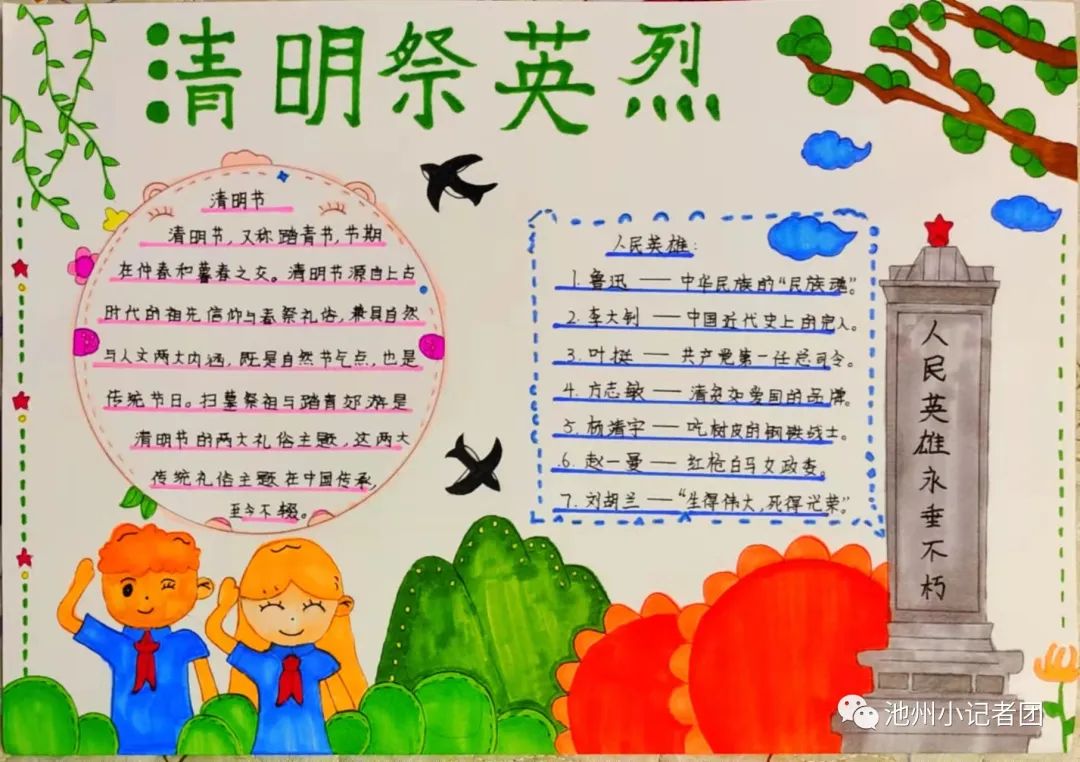 清明祭英烈
清明节
清明节,又称踏青节,节期
在仲春和暮春之交。清明节源自上古
时代的祖先信仰与春祭礼俗,兼具自然
与人文两大内涵,既是自然节气点,也是
传统节日。扫墓祭祖与踏青郊游是
清明节的两大礼俗主题,这两大
传统礼俗主题在中国传承,
至今不辍。
人民英雄:
1.鲁迅——中华民族的“民族魂”。
2.李大钊——中国近代史上的完人。
3.叶挺——共产党第一任总司令。
4.方志敏——清贫和爱国的品牌。
5.杨靖宇——吃树皮的钢铁战士。
6.赵一曼——红枪白马女政委。
7.刘胡兰——“生得伟大,死得光荣”
人民英雄永垂不朽
池州小记者团